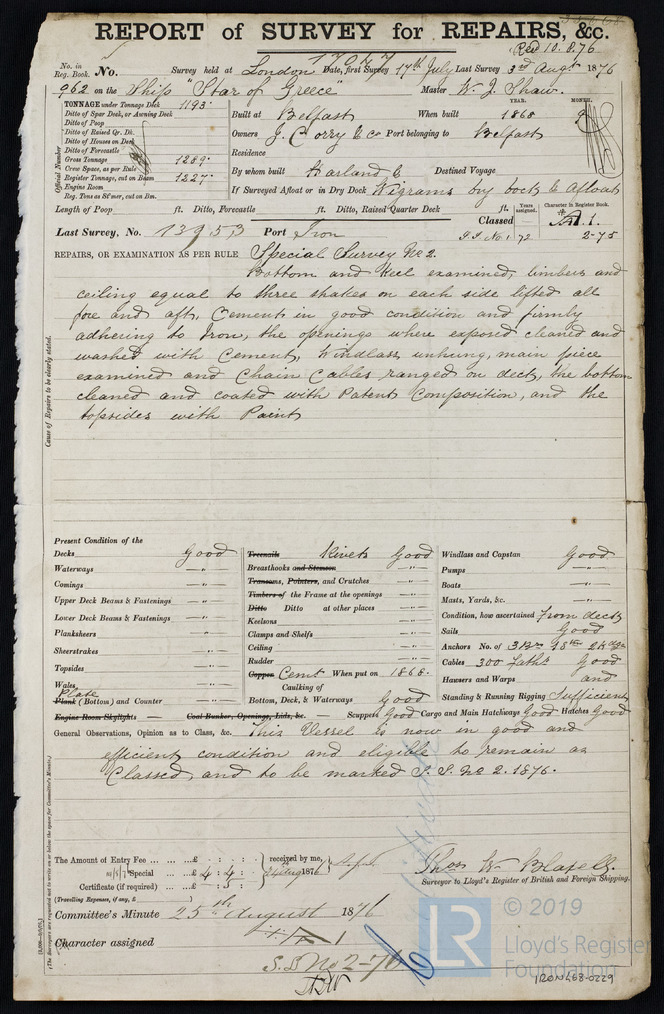 REPORT of SURVEY for REPAIRS, &c.
Recd 10.8.76
No. in Reg. Book. No. Survey held at London Date, first Survey 17th July Last Survey 3rd Augt 1876
17047
962 on the Ship "Star of Greece" Master W. J. Shaw.
TONNAGE under Tonnage Deck 1193
Ditto of Spar Deck, or Awning Deck
Ditto of Poop
Ditto of Raised Qr. Dk.
Ditto of Houses on Deck
Ditto of Forecastle
Gross Tonnage 1289
Crew Space, as per Rule
Register Tonnage, cut on Beam 1227
Engine Room
Reg. Tons as St'mer, cut on Bm.
Official Number
Built at Belfast When built YEAR. 1868 MONTH. 9
Owners J. Corry & Co Port belonging to Belfast
Residence
By whom built Harland & Destined Voyage
If Surveyed Afloat or in Dry Dock Wigrams Dry Dock & Afloat
Length of Poop ft. Ditto, Forecastle ft. Ditto, Raised Quarter Deck ft.
Classed Years assigned. Character in Register Book. A.1.
Last Survey, No. 13953 Port Iron S.S. No. 1. 72 2-75
REPAIRS, OR EXAMINATION AS PER RULE Special Survey No 2.
Bottom and Keel examined, limbers and
ceiling equal to three strakes on each side lifted all
fore and aft, Cement in good condition and firmly
adhering to Iron, the openings where exposed cleaned and
washed with Cement, Windlass unhung, main piece
examined and Chain Cables ranged on deck, the bottom
cleaned and coated with Patent Composition, and the
topsides with Paint
Cause of Repairs to be clearly stated.
Present Condition of the
Decks Good
Waterways — " —
Comings — " —
Upper Deck Beams & Fastenings — " —
Lower Deck Beams & Fastenings — " —
Planksheers — " —
Sheerstrakes — " —
Topsides — " —
Wales — " —
Plate
Plank (Bottom) and Counter — " —
Engine Room Skylights — " — Coal Bunker, Openings, Lids, &c. — " —
Treenails Rivets Good
Breasthooks and Stemson — " —
Transoms, Pointers, and Crutches — " —
Timbers of the Frame at the openings — " —
Ditto Ditto at other places — " —
Keelsons — " —
Clamps and Shelfs — " —
Ceiling — " —
Rudder — " —
Copper Cemt When put on 1868.
Caulking of
Bottom, Deck, & Waterways Good
Scuppers Good Cargo and Main Hatchways Good Hatches Good
Windlass and Capstan Good
Pumps — " —
Boats — " —
Masts, Yards, &c. — " —
Condition, how ascertained From deck
Sails Good
Anchors No. of 3 Br 1 St 2 Kedges
Cables 300 faths Good
Hawsers and Warps and
Standing & Running Rigging Sufficient
General Observations, Opinion as to Class, &c. This Vessel is now in good and
efficient condition and eligible to remain as
Classed, and to be marked S.S. No 2. 1876.
The Amount of Entry Fee ... ... £ : : received by me,
Special ... ... £ 4 : 4 : 1876
Certificate (if required) ... £ : :
(Travelling Expenses, if any, £ )
Thos W Blasell
Surveyor to Lloyd's Register of British and Foreign Shipping.
Committee's Minute 25th August 1876
Character assigned A 1
S.S No 2-76
(The Surveyors are requested not to write on or below the space for Committee's Minute.)
© 2019
LR Lloyd's Register
Foundation
IRON468-0229